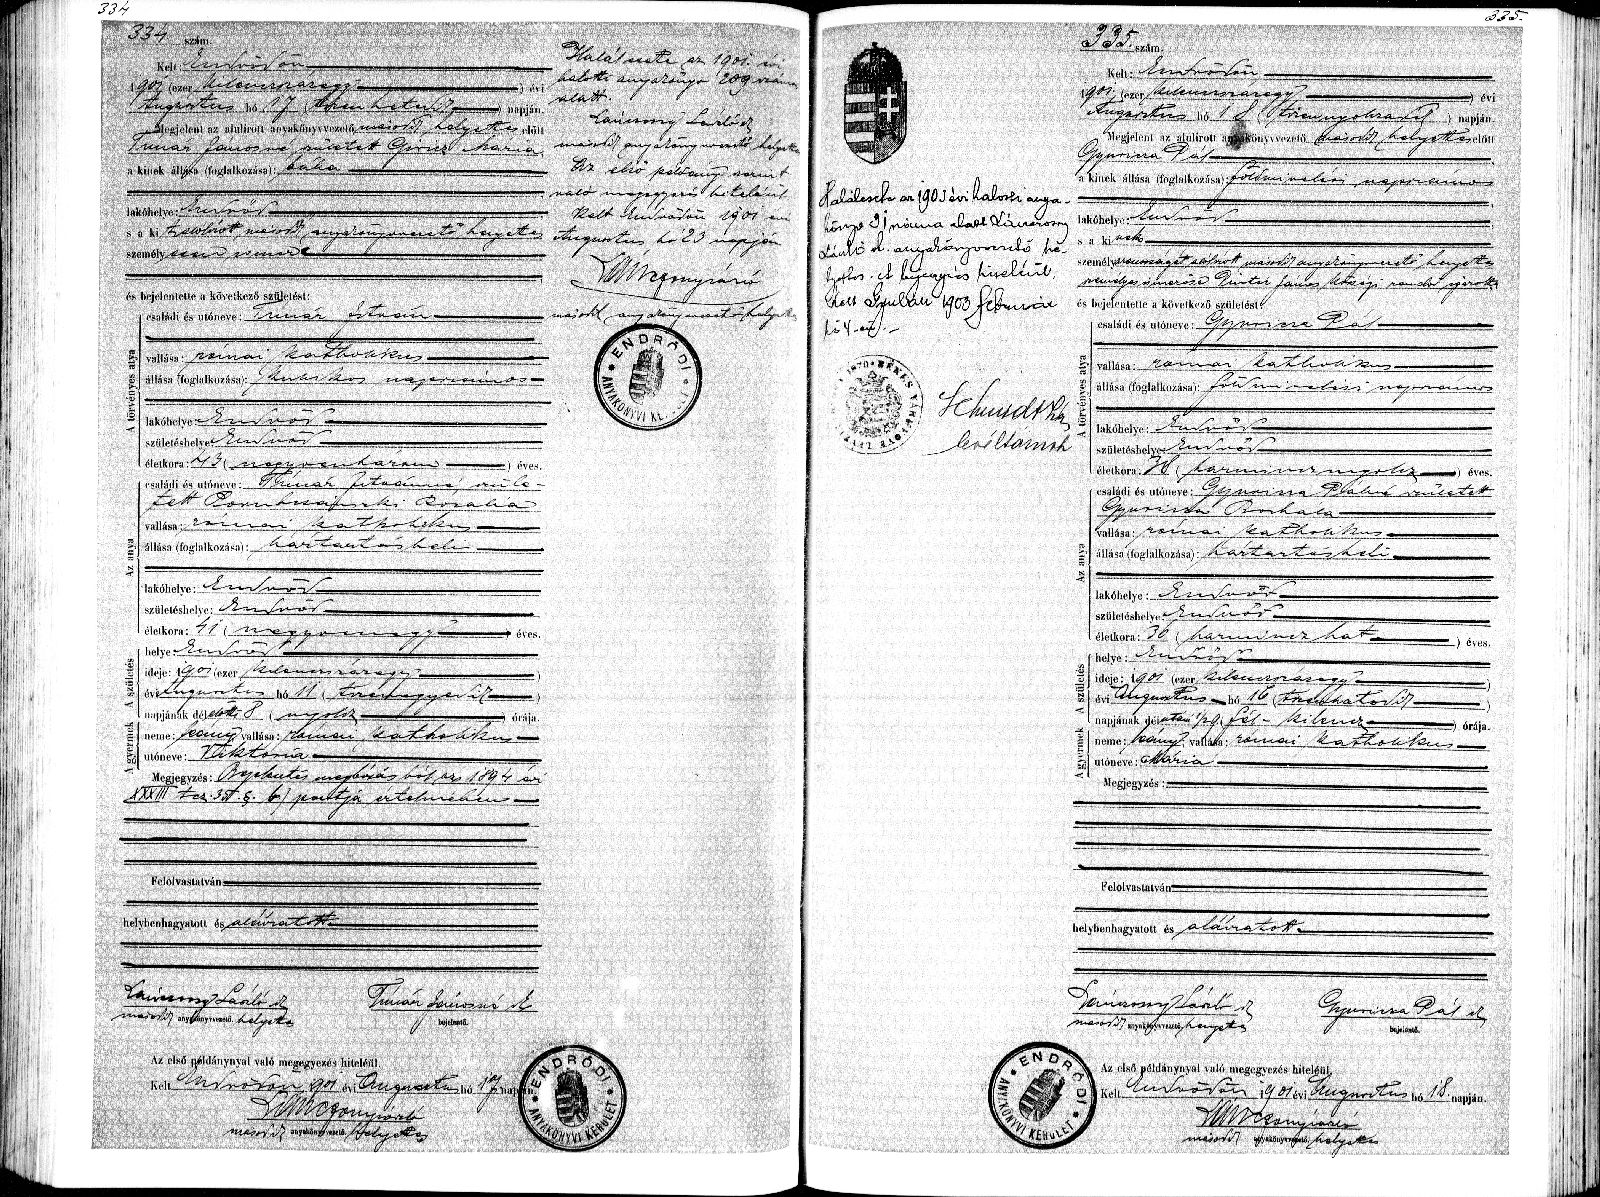 334
334 szám.
Kelt Endrődön
1901 (ezer kilenczszázegy) évi
Augusztus hó 17 (tizenhetedik) napján.
Megjelent az alulirott anyakönyvvezető másodh. helyettes előtt
Tímár Jánosné született Giricz Mária
a kinek állása (foglalkozása): bába
lakóhelye: Endrőd
s a kit alulirott másodh. anyakönyvvezető helyettes
személyesen ismer
és bejelentette a következő születést:
A törvényes atya
családi és utóneve: Tímár István
vallása: római katholikus
állása (foglalkozása): kubikos napszámos
lakóhelye: Endrőd
születéshelye: Endrőd
életkora: 43 (negyvenhárom) éves.
Az anya
családi és utóneve: Tímár Istvánné, szüle-
tett Rozália
vallása: római katholikus
állása (foglalkozása): háztartásbeli
lakóhelye: Endrőd
születéshelye: Endrőd
életkora: 41 (negyvenegy) éves.
A születés
helye: Endrőd
ideje: 1901 (ezer kilenczszázegy)
évi Augusztus hó 11 (tizenegyedik)
napjának délelőtti 8 (nyolcz) órája.
A gyermek
neme: leány vallása: római katholikus
utóneve: Viktória
Megjegyzés: 1894 évi
XXXIII t.cz. §. b) pontja értelmében
Felolvastatván
helybenhagyatott és aláiratott
Lánczony László sk
másodh. anyakönyvvezető. helyettes
Tímár Jánosné sk
bejelentő.
Az első példánynyal való megegyezés hiteléül.
Kelt Endrődön 1901 évi Augusztus hó 17 napján.
Lánczony László
másodh. anyakönyvvezető. helyettes
ENDRŐDI
ANYAKÖNYVI KERÜLET
Halálesete az 1901. évi
halotti anyakönyv 209 szám
alatt.
Lánczony László sk
másodh. anyakönyvvezető helyettes
Az első példány szerint
való megegyezés hiteléül
Kelt Endrődön 1901 évi
Augusztus hó 23 napján
Lánczony László
másodh. anyakönyvvezető helyettes
ENDRŐDI
ANYAKÖNYVI KE
335.
335. szám.
Kelt: Endrődön
1901 (ezer kilenczszázegy) évi
Augusztus hó 18 (tizennyolczadik) napján.
Megjelent az alulirott anyakönyvvezető másodh. helyettes előtt
Gyuricza Pál
a kinek állása (foglalkozása): földmivelési napszámos
lakóhelye: Endrőd
s a kinek
személyazonosságát alulirott másodh. anyakönyvvezető helyettes
személyes ismerőse Pintér János községi rendőr igazolta
és bejelentette a következő születést:
A törvényes atya
családi és utóneve: Gyuricza Pál
vallása: római katholikus
állása (foglalkozása): földmivelési napszámos
lakóhelye: Endrőd
születéshelye: Endrőd
életkora: 38 (harmincz nyolcz) éves.
Az anya
családi és utóneve: Gyuricza Pálné született
Gyuricza Borbála
vallása: római katholikus
állása (foglalkozása): háztartásbeli
lakóhelye: Endrőd
születéshelye: Endrőd
életkora: 36 (harmincz hat) éves.
A születés
helye: Endrőd
ideje: 1901 (ezer kilenczszázegy)
évi Augusztus hó 16 (tizenhatodik)
napjának délutáni 1/2 9 (fél-kilencz) órája.
A gyermek
neme: leány, vallása: római katholikus
utóneve: Mária
Megjegyzés:
Felolvastatván
helybenhagyatott és aláiratott
Lánczony László sk
másodh. anyakönyvvezető, helyettes
Gyuricza Pál sk
bejelentő.
Az első példánynyal való megegyezés hiteléül.
Kelt Endrődön 1901 évi Augusztus hó 18. napján.
Lánczony László
másodh. anyakönyvvezető, helyettes
ENDRŐDI
ANYAKÖNYVI KERÜLET
Halálesete az 1903 évi halotti anya-
könyv 21 száma alatt Lánczony
László sk. anyakönyvvezető he-
lyettes. A bejegyzés hiteléül.
Kelt Gyulán 1903 február
hó 4-én.
BÉKÉS VÁRMEGYE
levéltárnok